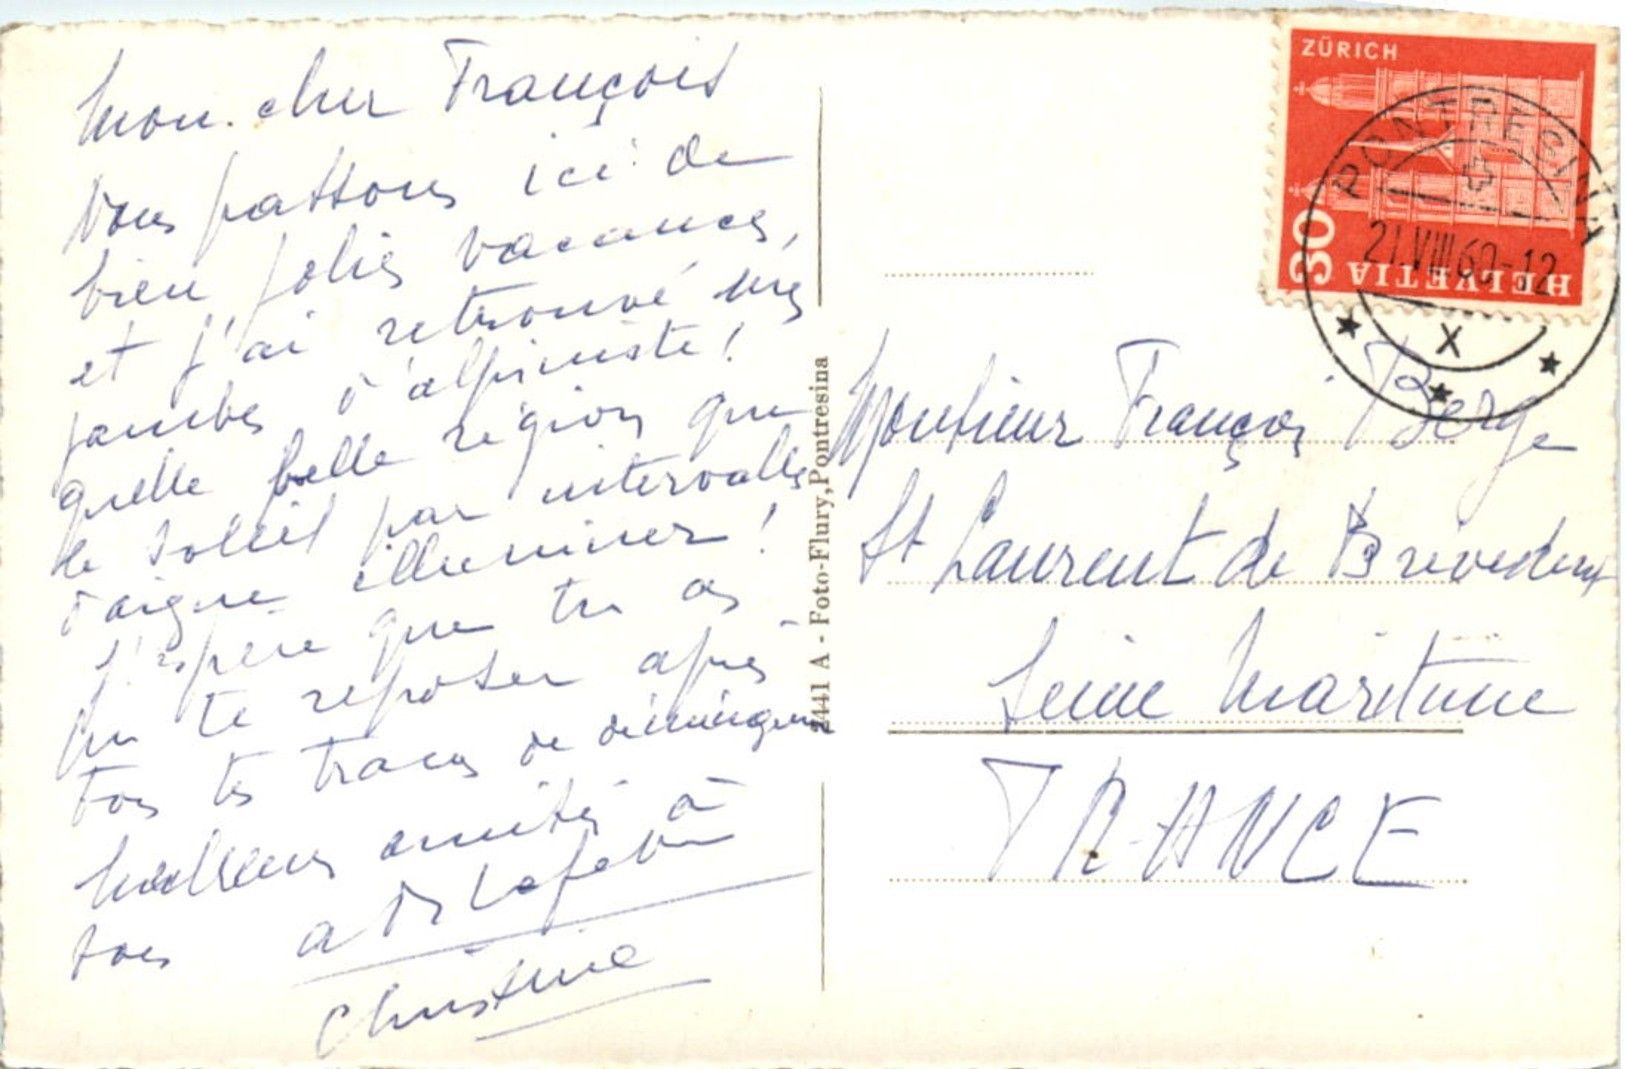 Mon cher François
Nous passons ici de
bien jolies vacances,
et j'ai retrouvé mes
jambes d'alpiniste !
quelle belle région que
le soleil par intervalles
daigne illuminer !
J'espère que tu as
pu te reposer après
tous tes tracas de
Meilleures amitiés à
tous
Christine
2441 A - Foto-Flury, Pontresina
ZÜRICH
30
HELVETIA
PONTRESINA
21.VIII.60-12
X
Monsieur François Berge
St Laurent de Brèvedent
Seine Maritime
FRANCE